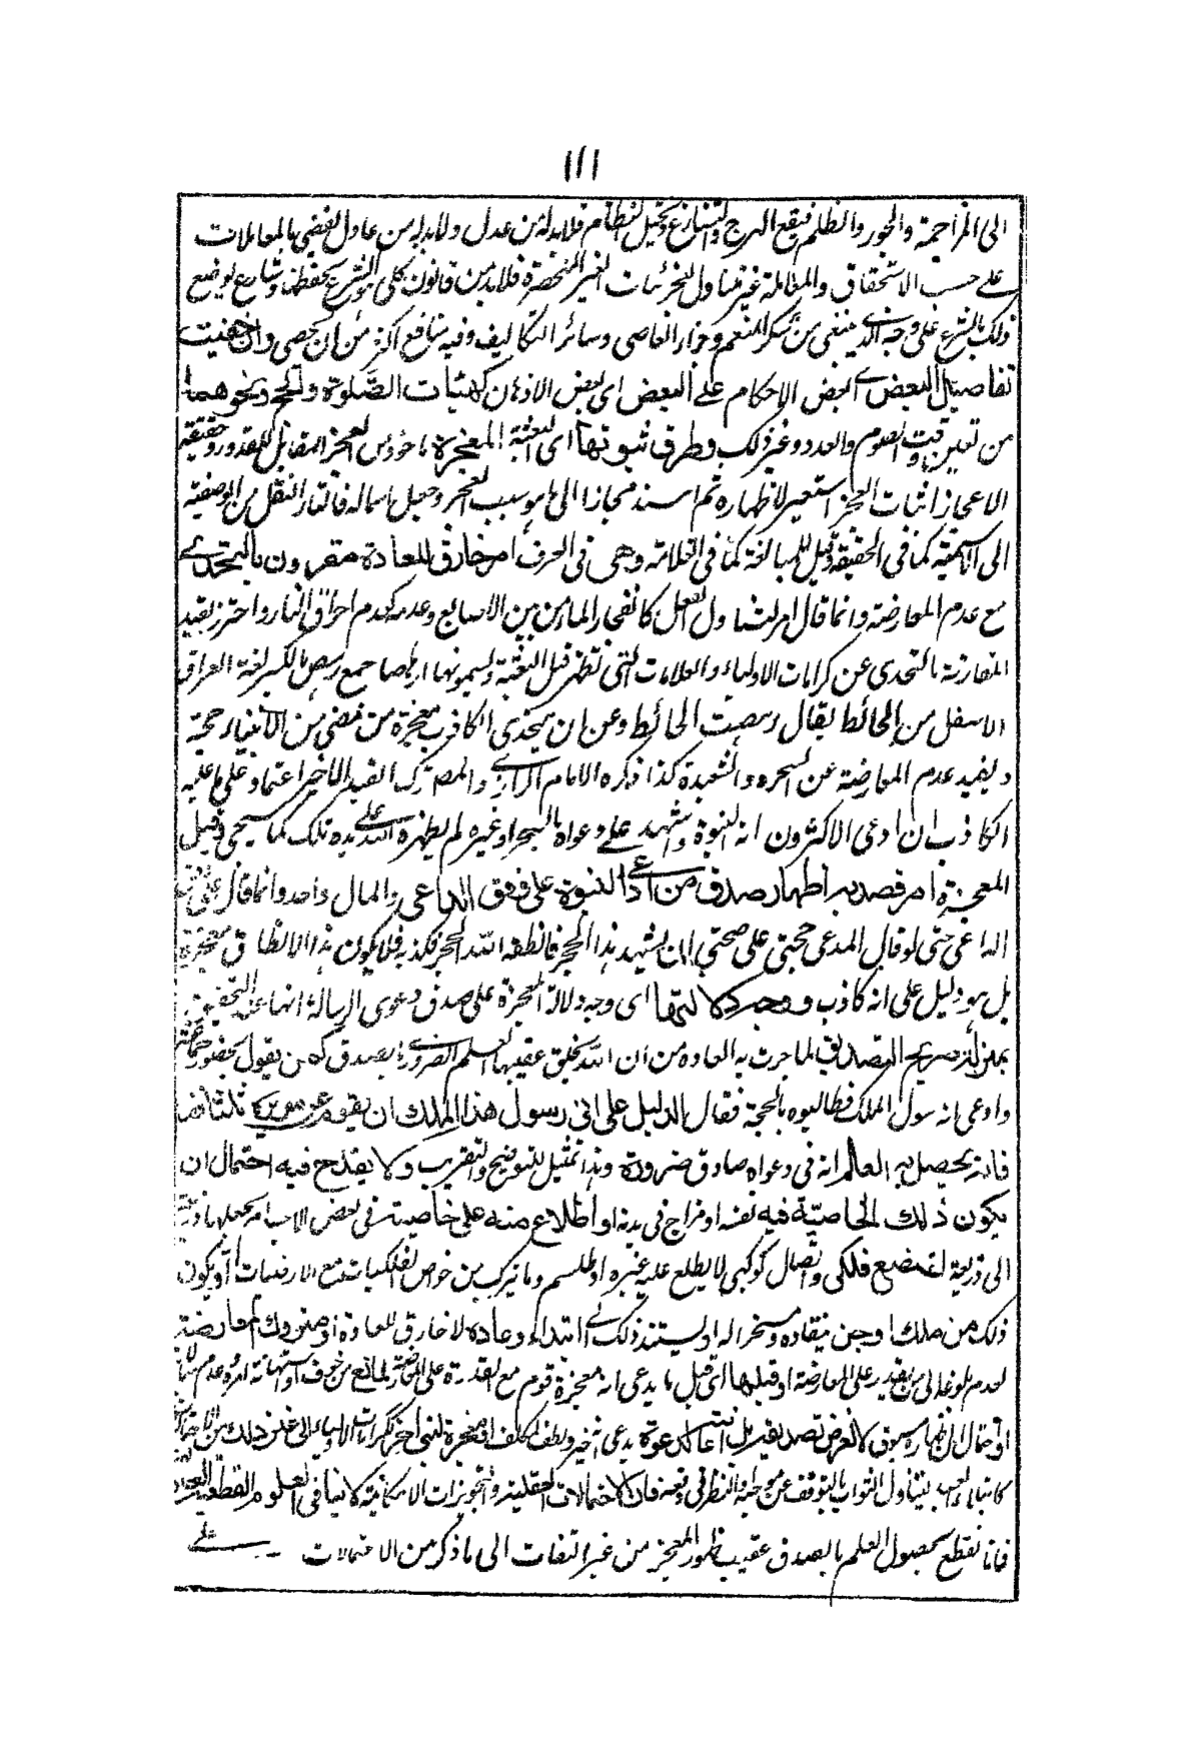 ١١١
الى المزاحمة والجور والظلم فيقع الهرج والتنازع ويختل النظام فلا بد له من عدل ولا بد له من عادل يقضى بالمعاملات
على حسب الاستحقاق والمقابلة غير متناول للجزئيات الغير المنحصرة فلا بد من قانون كلى هو الشرع يحفظها وشارع لوضع
ذلك الشرع على وجه الذى ينبغى من شكر المنعم وجزاء العاصى وسائر التكاليف وفيه منافع اكثر من ان تحصى وان خفيت
تفاصيل البعض اى بعض الاحكام على البعض اى بعض الاذهان كهيئات الصلوة والحج ونحوهما
من تعيين وقت الصوم والعدد وغير ذلك وطرق ثبوتها اى البعثة المعجزة ماخوذ من العجز المقابل للقدرة وحقيقة
الاعجاز اثبات العجز استعير لاظهاره ثم اسند مجازا الى ما هو سبب العجز وجعل اسما له فالتاء للنقل من الوصفية
الى الاسمية كما فى الحقيقة وقيل للمبالغة كما فى العلامة وهى فى العرف امر خارق للعادة مقرون بالتحدى
مع عدم المعارضة وانما قال امر ليتناول الفعل كانفجار الماء من بين الاصابع وعدمه كعدم احراق النار واحترز بقيد
المقارنة بالتحدى عن كرامات الاولياء والعلامات التى تظهر قبل البعثة ويسمونها ارهاصا جمع رهص بالكسر لغة العراق
الاسفل من الحائط يقال رهصت الحائط وعن ان يتخذ الكاذب معجزة من مضى من الانبياء حجة
وبقيد عدم المعارضة عن السحر والشعبدة كذا ذكره الامام الرازى والمص ترك القيد الاخير اعتمادا على ما عليه
الكاذب ان ادعى الاكثرون انه النبوة واستشهد على دعواه بالسحر او غيره لم يظهره الله على يده تلك كما سيجئ وقيل
المعجزة امر قصد به اظهار صدق من ادعى النبوة على وفق الداعى والمال واحد وانما قال على وفق
الداعى حتى لو قال المدعى حجتى على صحتى ان يشهد هذا الحجر فانطقه الله الحجر فكذبه فلا يكون هذا الانطاق معجزة
بل هو دليل على انه كاذب ووجه دلالتها اى وجه دلالة المعجزة على صدق دعوى الرسالة انها عند التحقيق
بمنزلة صريح التصديق لما جرت به العادة من ان الله يخلق عقيبها العلم الضرورى بصدقه كمن يقول بحضور جماعة
وادعى انه رسول الملك فطالبوه بالحجة فقال الدليل على انى رسول هذا الملك ان يقوم عن سريره ثلثا
فانه يحصل به العلم انه فى دعواه صادق ضرورة وهذا تمثيل للتوضيح والتقريب ولا يقدح فيه احتمال ان
يكون ذلك لخاصية فيه نفسه او مزاج فى بدنه او اطلاع منه على خاصية فى بعض الاجسام يجعلها ذريعة
الى ذريعة لوضع فلكى واتصال كوكبى لا يطلع عليه غيره او طلسم وما يتركب من خواص الفلكيات مع الارضيات او يكون
ذلك من ملك او جن ينقاده ومسخر اله او يستند ذلك الى ابتداء عادة لا خارق للعادة او متروك المعارضة
لعدم بلوغها الى من يقدر على المعارضة او قبلها اى قبل ما يدعى انه معجزة قوم مع القدرة على المعارضة لمانع من خوف او استهانة امره عدم
او احتمال ان اظهاره مسبوق كالغرض تصديقه بل دعوة يدعى لتخير ولطف المكلف او معجزة لنبى اخر او كرامات الاولياء الى غير ذلك من
يتناول الثواب بالتوقف عن موجبه والنظر فى دفعه فان الاحتمالات العقلية والتجويزات الامكانية لا ينافى العلوم القطعية العادية
فانا نقطع بحصول العلم بالصدق عقيب ظهور المعجز من غير التفات الى ما ذكر من الاحتمالات
على